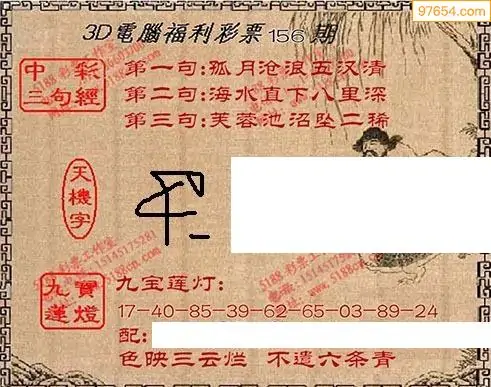 97654.com
3D電腦福利彩票156期
中彩
三句經
第一句:孤月沧浪五汉清
第二句:海水直下八里深
第三句:芙蓉池沼坠二稀
天機字
九寶
蓮燈
九宝莲灯:
17-40-85-39-62-65-03-89-24
配:
色映三云烂 不遣六条青